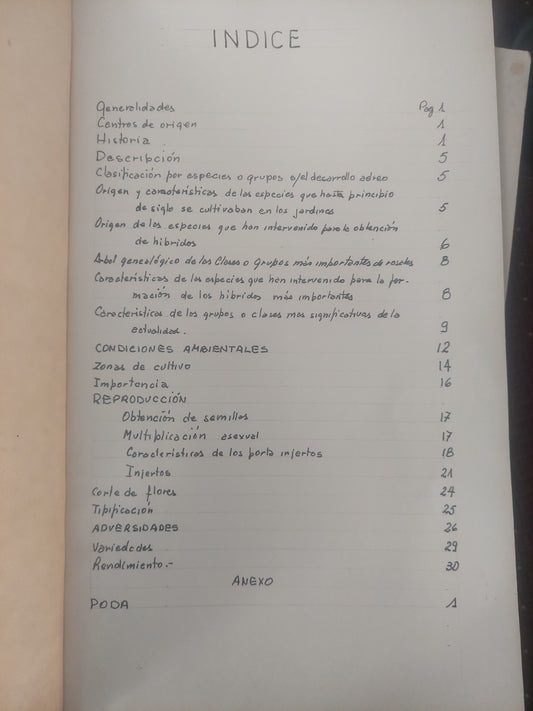 INDICE
Generalidades Pag 1
Centros de origen 1
Historia 1
Descripción 5
Clasificación por especies o grupos s/el desarrollo aéreo 5
Origen y características de las especies que hasta principio
de siglo se cultivaban en los jardines 5
Origen de las especies que han intervenido para la obtención
de hibridos 6
Arbol genealógico de las Clases o Grupos más importantes de rosales 8
Características de las especies que han intervenido para la for-
mación de los hibridos más importantes 8
Características de los grupos o clases mas significativas de la
actualidad. 9
CONDICIONES AMBIENTALES 12
Zonas de cultivo 14
Importancia 16
REPRODUCCIÓN
Obtención de semillas 17
Multiplicación asexual 17
Características de los porta injertos 18
Injertos 21
Corte de flores 24
Tipificación 25
ADVERSIDADES 26
Variedades 29
Rendimiento.- 30
ANEXO
PODA 1